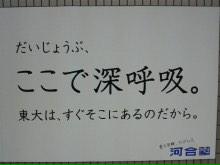 だいじょうぶ、
ここで深呼吸。
東大は、すぐそこにあるのだから。
河合塾